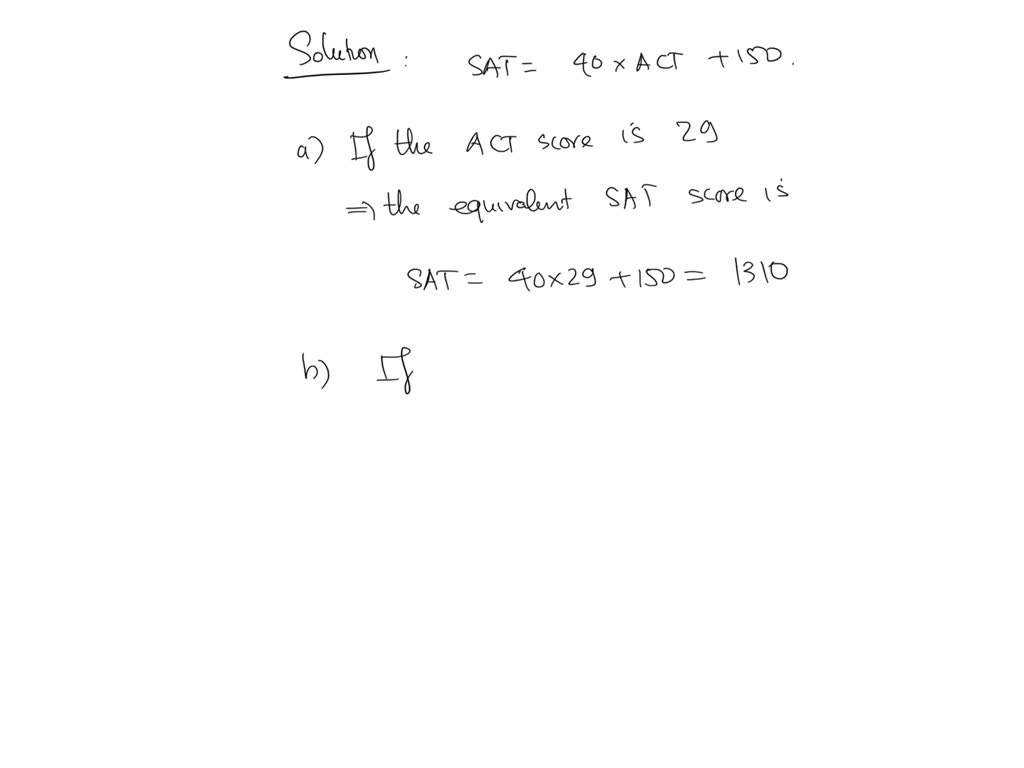 Solution : SAT = 40 x ACT + 150.
a) If the ACT score is 29
⇒ the equivalent SAT score is
SAT = 40x29 + 150 = 1310
b) If